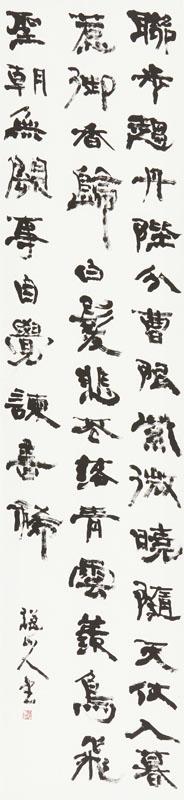 聯步趨丹陛分曹限紫微曉隨天仗入暮
惹御香歸白髮悲花落青雲羨鳥飛
聖朝無闕事自覺諫書稀
山人書